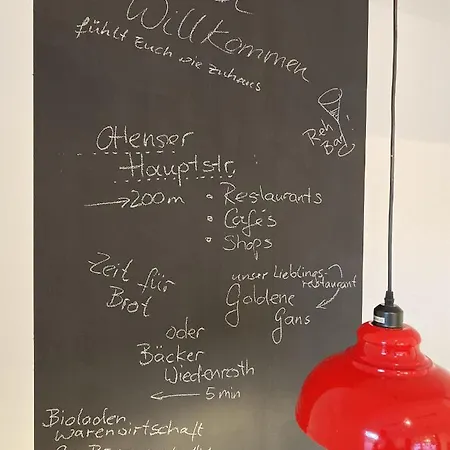 Willkommen
fühlt Euch wie zuhaus
Reh
Bar
Ottenser
Hauptstr.
→ 200m • Restaurants
• Cafés
• Shops
Zeit für
Brot
unser Lieblings-
restaurant
Goldene
Gans
oder
Bäcker
Wiedenroth
← 5 min
Bioladen
Warenwirtschaft